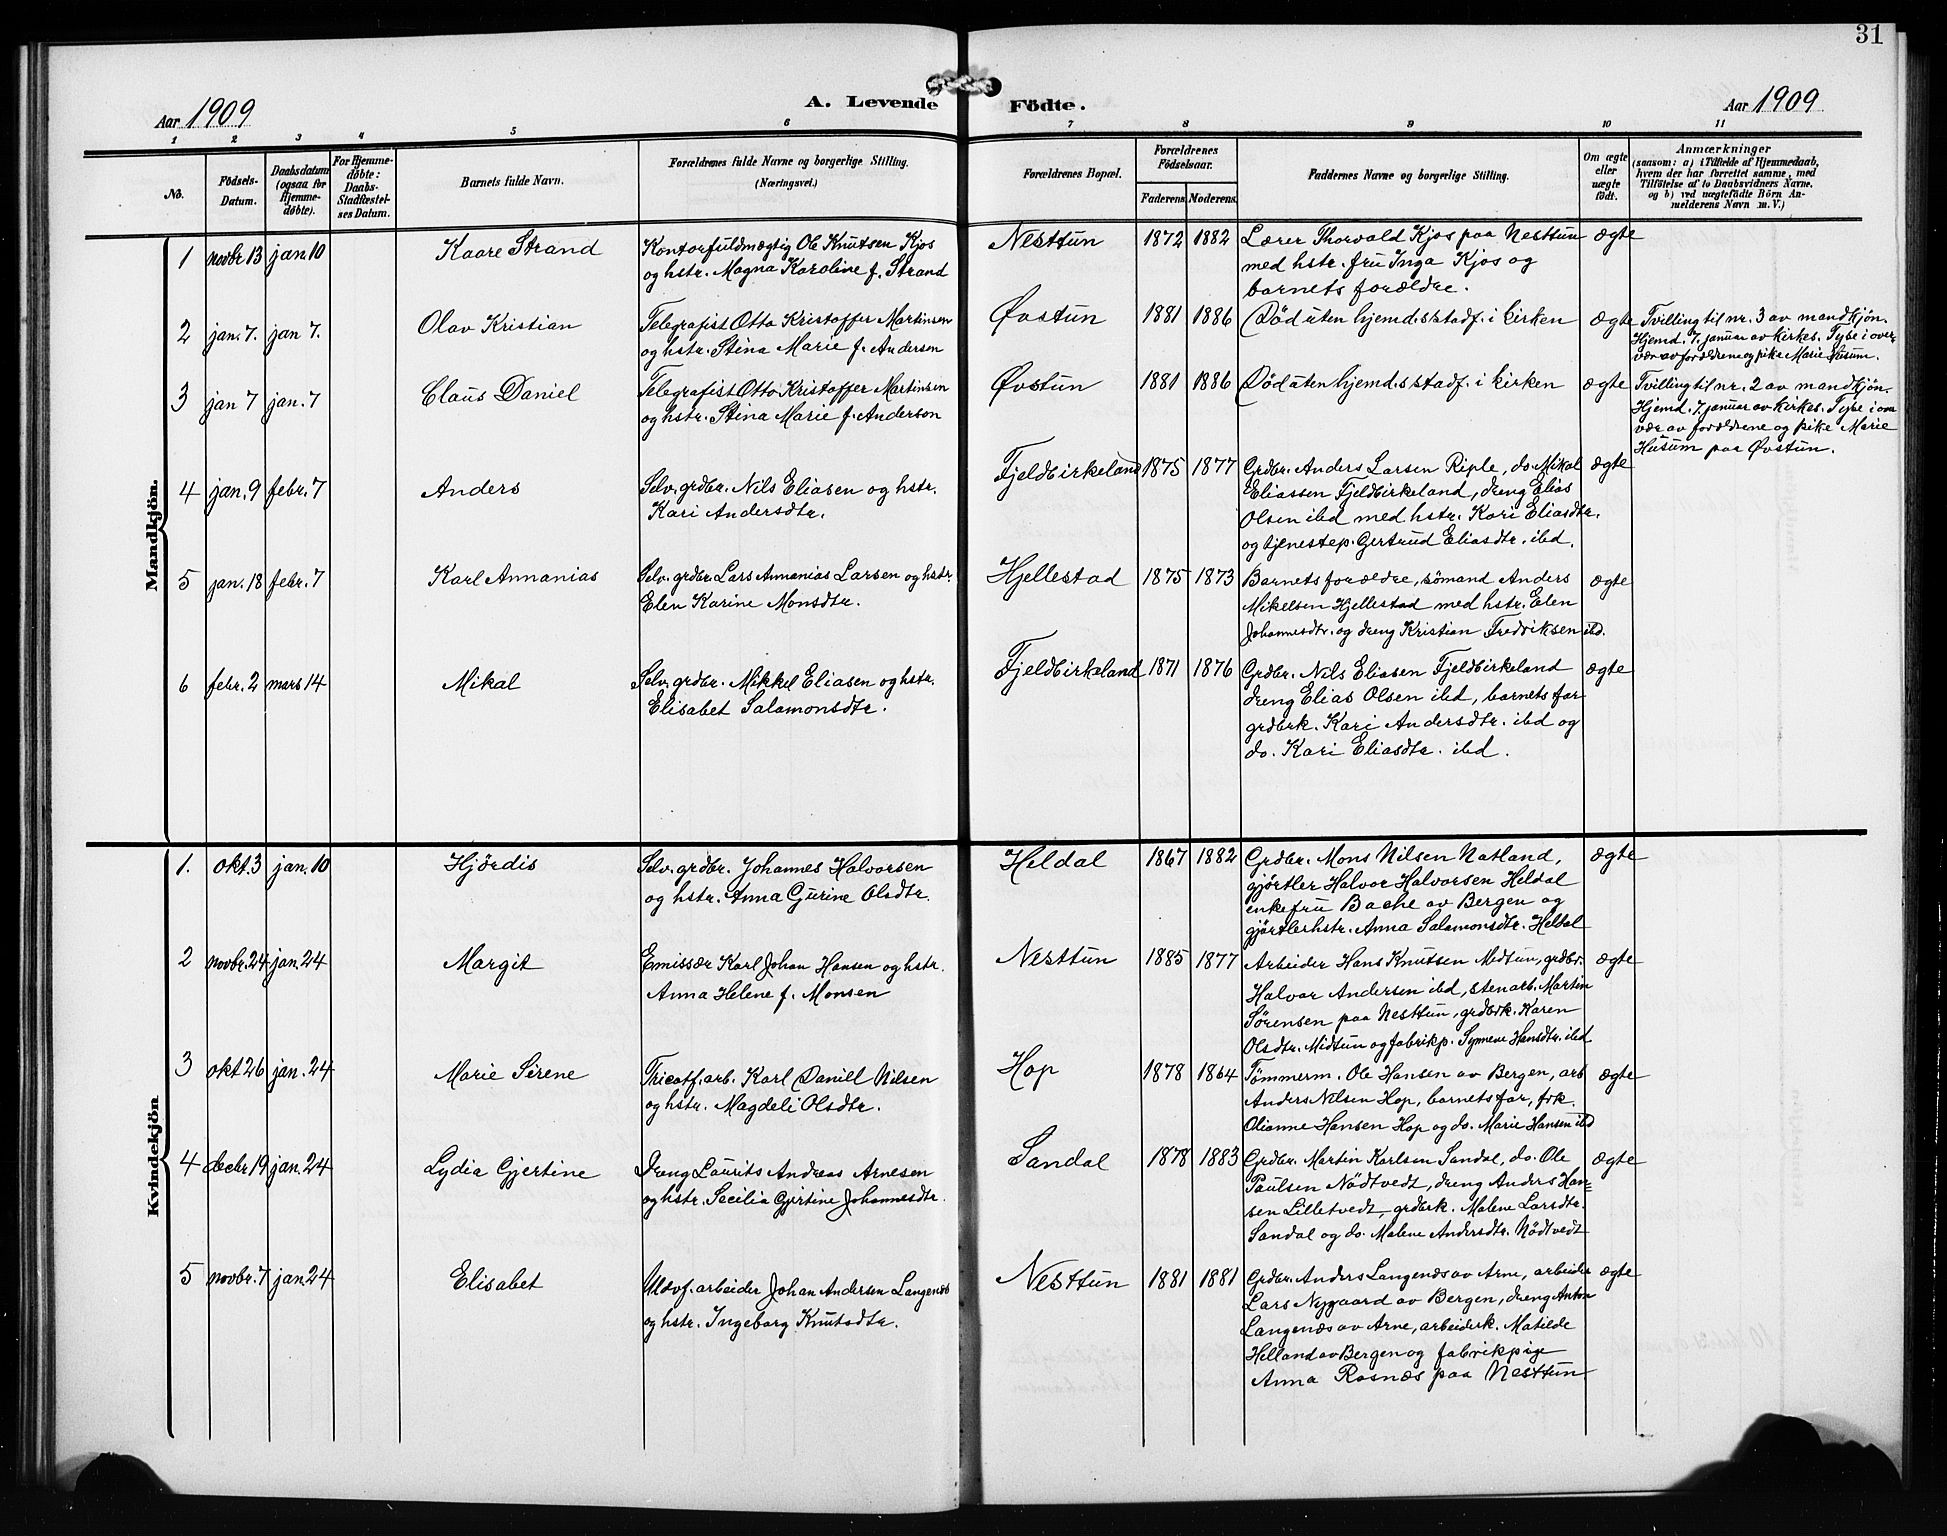 31
Aar 1909
A. Levende Födte.
Aar 1909
1 2 3 4 5 6 7 8 9 10 11
No.
Födsels-
Datum.
Daabsdatum
(ogsaa for
Hjemme-
døbte).
For Hjemme-
døbte:
Daabs-
Stadfæstel-
ses Datum.
Barnets fulde Navn.
Forældrenes fulde Navne og borgerlige Stilling.
(Næringsvei.)
Forældrenes Bopæl.
Forældrenes
Födselsaar.
Faderens Moderens
Faddernes Navne og borgerlige Stilling.
Om ægte
eller
uægte
födt.
Anmærkninger
(saasom: a) i Tilfælde af Hjemmedaab,
hvem der har forrettet samme, med
Tilföielse af to Daabsvidners Navne,
og b) ved uægtefödte Börn An-
melderens Navn m. V.)
Mandkjön.
1 novbr 13 jan 10 Kaare Strand
Kontorfuldmægtig Ole Knutsen Kjos
og hstr. Magna Karoline f. Strand
Nesttun 1872 1882
Lærer Thorvald Kjos paa Nesttun
med hstr. fru Inga Kjos og
barnets forældre.
ægte
2 jan. 7. jan 7. Olav Kristian
Telegrafist Otto Kristoffer Martinsen
og hstr. Stina Marie f. Andersen
Øvstun 1881 1886
Död uten hjemd.s stadf. i kirken
ægte
Tvilling til nr. 3 av mandkjön.
Hjemd. 7. januar av kirkes. Tybe i over-
vær av forældrene og pike Marie Husum.
3 jan 7 jan. 7 Claus Daniel
Telegrafist Otto Kristoffer Martinsen
og hstr. Stina Marie f. Anderson
Øvstun 1881 1886
Död uten hjemd.s stadf. i kirken
ægte
Tvilling til nr. 2 av mandkjön.
Hjemd. 7. januar av kirkes. Tybe i over
vær av forældrene og pike Marie
Husum paa Øvstun.
4 jan. 9 febr. 7 Anders
Selv. grdbr. Nils Eliasen og hstr.
Kari Andersdtr.
Fjeldbirkeland 1875 1877
Grdbr. Anders Larsen Riple, do. Mikal
Eliassen Fjeldbirkeland, dreng Elias
Olsen ibd med hstr. Kari Eliasdtr.
og tjenestep. Gertrud Eliasdtr. ibd.
ægte
5 jan. 18 febr. 7 Karl Annanias
Selv. grdbr. Lars Annanias Larsen og hstr.
Elen Karine Monsdtr.
Hjellestad 1875 1873
Barnets forældre, sömand Anders
Mikelsen Hjellestad med hstr. Elen
Johannesdtr. og dreng Kristian Fredriksen ibd.
ægte
6 febr. 2 mars 14 Mikal
Selv. grdbr. Mikkel Eliasen og hstr.
Elisabet Salamonsdtr.
Fjeldbirkeland 1871 1876
Grdbr. Nils Eliasen Fjeldbirkeland
dreng Elias Olsen ibd, barnets far
grdbrk. Kari Andersdtr. ibd og
do. Kari Eliasdtr. ibd.
ægte
Kvindekjön
1. okt. 3 jan. 10 Hjørdis
Selv. grdbr. Johannes Halvorsen
og hstr. Anna Gurine Olsdtr.
Heldal 1867 1882
Grdbr. Mons Nilsen Natland,
gjørtler Halvor Halvorsen Heldal
enkefru Bache av Bergen og
gjørtlerhstr. Anna Salamonsdtr. Heldal
ægte
2 novbr. 24 jan. 24 Margit
Emissær Karl Johan Hansen og hstr.
Anna Helene f. Monsen
Nesttun 1885 1877
Arbeider Hans Knutsen Midtun, grdbr.
Halvor Andersen ibd, stenarb. Martin
Sørensen paa Nesttun, grdbrk. Karen
Olsdtr. Midtun og fabrikp. Synneve Hansdtr. ibd
ægte
3 okt 26 jan. 24 Marie Serene
Tricotf. arb. Karl Daniel Nilsen
og hstr. Magdeli Olsdtr.
Hop 1878 1864
Tømmerm. Ole Hansen av Bergen, arb
Anders Nilsen Hop, barnets far, frk.
Olianne Hansen Hop og do. Marie Hansen ibd
ægte
4 decbr 19 jan. 24 Lydia Gjertine
Dreng Laurits Andreas Arnesen
og hstr. Secilia Gjertine Johannesdtr.
Sandal 1878 1883
Grdbr. Martin Karlsen Sandal, do. Ole
Paulsen Nödtvedt, dreng Anders Han=
sen Lilletvedt, grdbrk. Malene Larsdtr.
Sandal og do. Malene Andersdtr. Nödtvedt
ægte
5 novbr. 7 jan. 24 Elisabet
Uldvf. arbeider Johan Andersen Langenæs
og hstr. Ingeborg Knutsdtr.
Nesttun 1881 1881
Grdbr. Anders Langenæs av Arne, arbeider
Lars Nygaard av Bergen, dreng Anton
Langenæs av Arne, arbeiderk. Matilde
Helland av Bergen og fabrikpige
Anna Rosnæs paa Nesttun
ægte